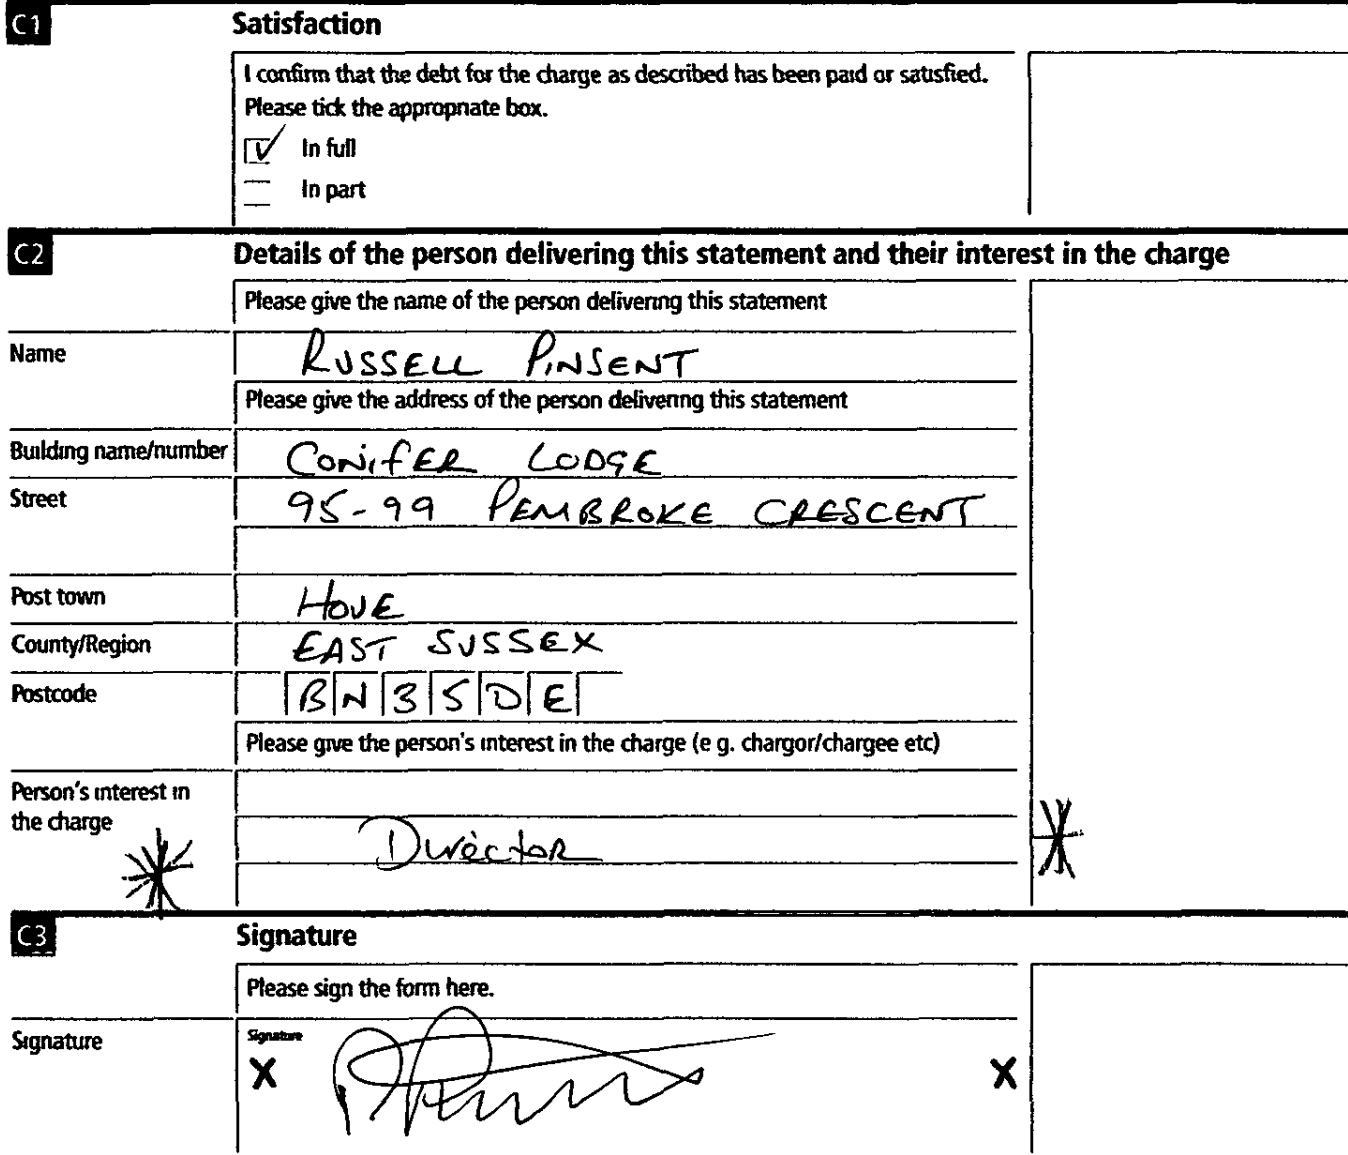 C1 Satisfaction
I confirm that the debt for the charge as described has been paid or satisfied.
Please tick the appropriate box.
In full
In part
C2 Details of the person delivering this statement and their interest in the charge
Please give the name of the person delivering this statement
Name RUSSELL PINSENT
Please give the address of the person delivering this statement
Building name/number CONIFER LODGE
Street 95-99 PEMBROKE CRESCENT
Post town HOVE
County/Region EAST SUSSEX
Postcode BN3 5DE
Please give the person's interest in the charge (e g. chargor/chargee etc)
Person's interest in
the charge Director
C3 Signature
Please sign the form here.
Signature Signature
X X